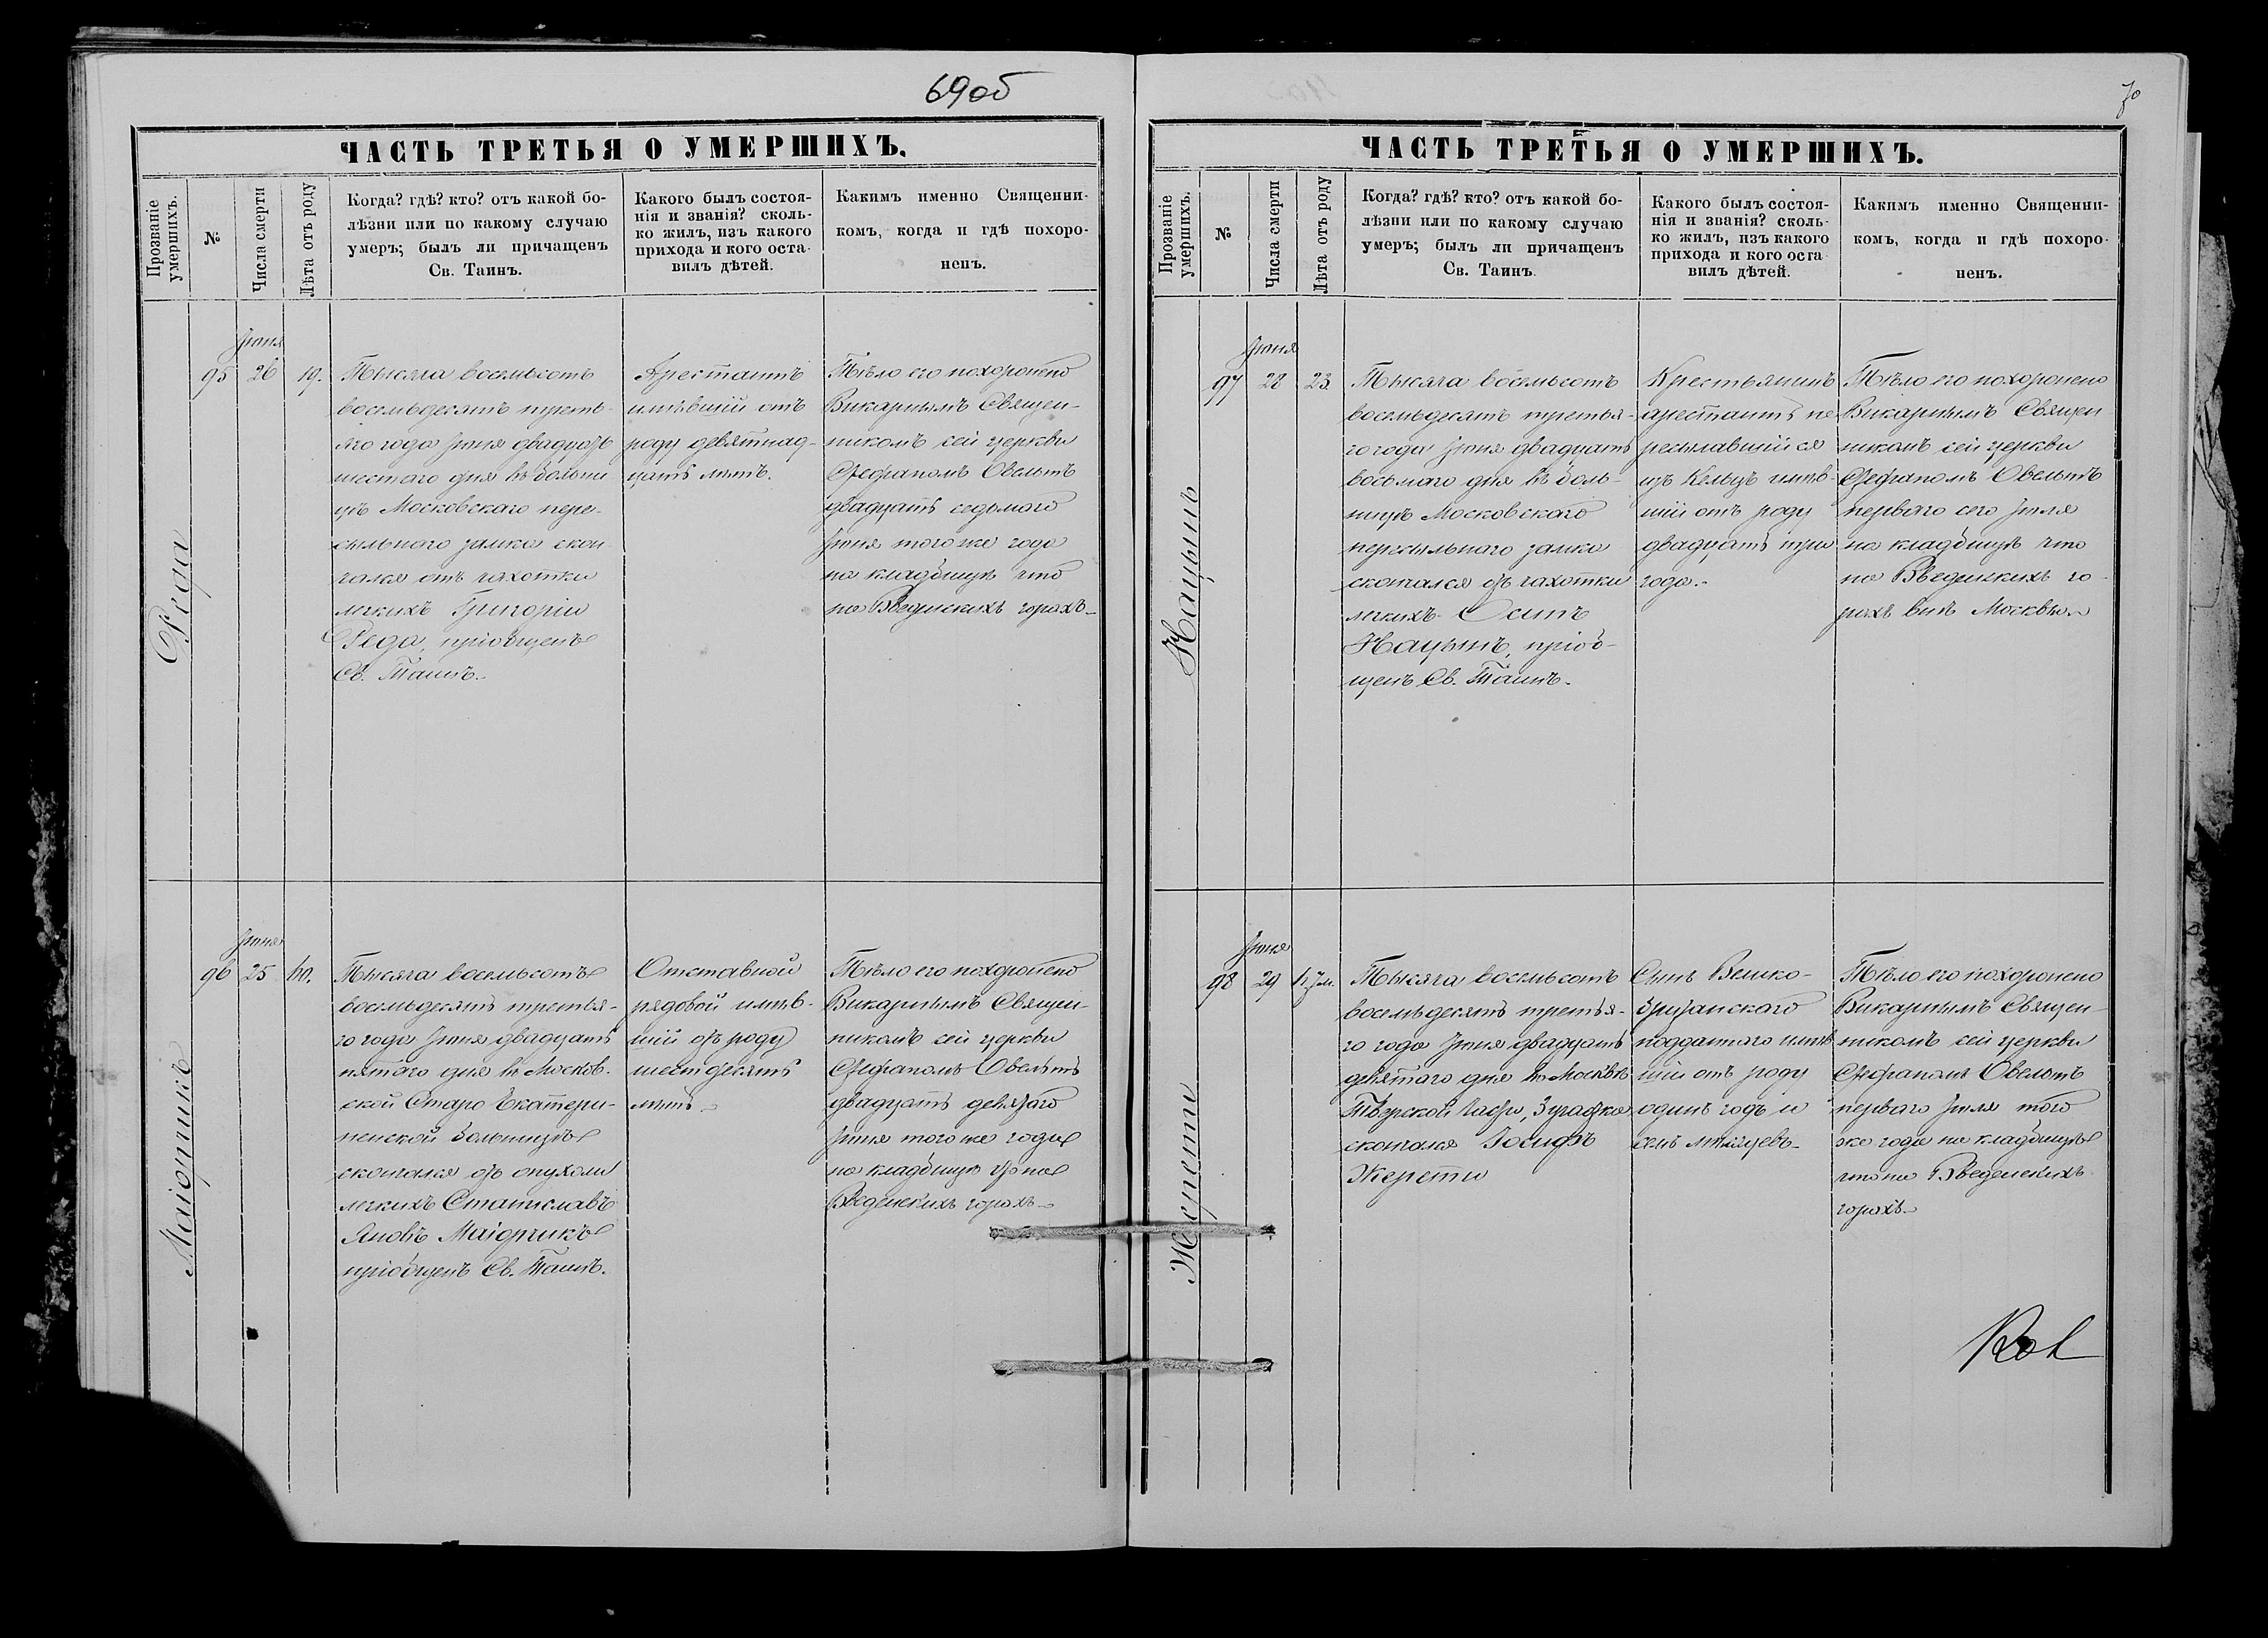 69об
ЧАСТЬ ТРЕТЬЯ О УМЕРШИХЪ.
Прозваніе умершихъ.
№
Числа смерти
Лѣта отъ роду
Когда? гдѣ? кто? отъ какой бо-
лѣзни или по какому случаю
умеръ; былъ ли причащенъ
Св. Таинъ.
Какого былъ состоя-
нія и званія? сколь-
ко жилъ, изъ какого
прихода и кого оста-
вилъ дѣтей.
Какимъ именно Священни-
комъ, когда и гдѣ похоро-
ненъ.
Реда
Іюня
95
26
19.
Тысяча восемьсотъ
восемьдесятъ треть-
яго года Іюня двадцать
шестаго дня въ больни
цѣ Московскаго пере-
сыльнаго замка скон
чался отъ чахотки
легкихъ Григорій
Реда, пріобщенъ
Св. Таинъ.
Арестантъ
имѣвшій отъ
роду девятнад-
цать лѣтъ.
Тѣло его похоронено
Викарнымъ Священ-
никомъ сей церкви
Стефаномъ Овельтъ
двадцать седьмого
Іюня того же года
на кладбищѣ что
на Введенскихъ горахъ
Маіорчикъ
Іюня
96
25
60.
Тысяча восемьсотъ
восемьдесятъ третья-
го года Іюня двадцать
пятаго дня въ Москов-
ской Старо Екатери-
ненской больницѣ
скончался отъ опухоли
легкихъ Станиславъ
Яновъ Маіорчикъ
пріобщенъ Св. Таинъ.
Отставной
рядовой имѣв-
шій отъ роду
шестдесятъ
лѣтъ
Тѣло его похоронено
Викарнымъ Священ-
никомъ сей церкви
Стефаномъ Овельтъ
двадцать девятаго
Іюня того же года
на кладбищѣ что на
Введенскихъ горахъ
70
ЧАСТЬ ТРЕТЬЯ О УМЕРШИХЪ.
Прозваніе умершихъ.
№
Числа смерти
Лѣта отъ роду
Когда? гдѣ? кто? отъ какой бо-
лѣзни или по какому случаю
умеръ; былъ ли причащенъ
Св. Таинъ.
Какого былъ состоя-
нія и званія? сколь-
ко жилъ, изъ какого
прихода и кого оста
вилъ дѣтей.
Какимъ именно Священни-
комъ, когда и гдѣ похоро-
ненъ.
Нацынъ
Іюня
97
28
23
Тысяча восемьсотъ
восемьдесятъ третья-
го года Іюня двадцать
восьмаго дня въ боль-
ницѣ Московскаго
пересыльнаго замка
скончался отъ чахотки
легкихъ Осипъ
Нацынъ, пріоб-
щенъ Св. Таинъ.
Крестьянинъ
арестантъ пе
ресылавшійся
изъ Кельцъ имѣв-
шій отъ роду
двадцать три
года.
Тѣло его похоронено
Викарнымъ Священ
никомъ сей церкви
Стефаномъ Овельтъ
перваго сего Іюля
на кладбищѣ что
на Введенскихъ го-
рахъ внѣ Москвы
Жерети
Іюня
98
29
1 г 7 м.
Тысяча восемьсотъ
восемьдесятъ третья-
го года Іюня двадцать
девятаго дня въ Москвѣ
Тверской части, 3 участка
скончался Іосифъ
Жерети
Сынъ Велико-
британскаго
подданнаго имѣв
шій отъ роду
одинъ годъ и
семь мѣсяцевъ
Тѣло его похоронено
Викарнымъ Священ
никомъ сей церкви
Стефаномъ Овельтъ
перваго Іюля того
же года на кладбищѣ
что на Введенскихъ
горахъ